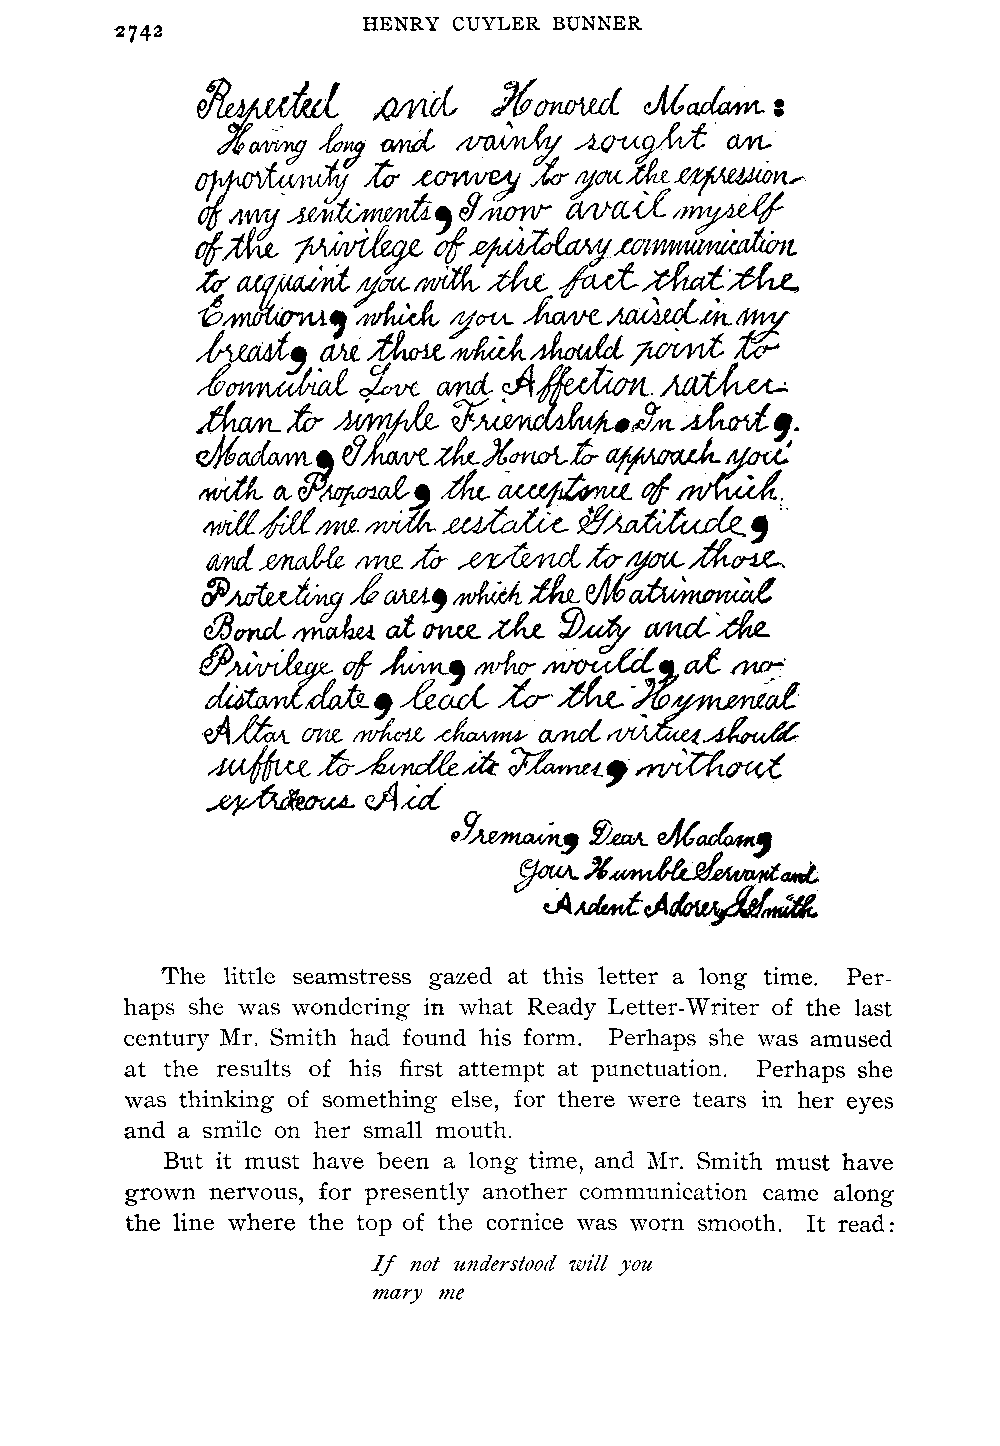 2742
HENRY CUYLER BUNNER
Respected and Honored Madam:
Having long and vainly sought an
opportunity to convey to you the expression
of my sentiments, I now avail myself
of the privilege of epistolary communication
to acquaint you with the fact that the
Emotions, which you have raised in my
breast, are those which should point to
Connubial Love and Affection rather
than to simple Friendship. In short,
Madam, I have the Honor to approach you
with a Proposal, the acceptance of which
will fill me with ecstatic Gratitude,
and enable me to extend to you those
Protecting Cares, which the Matrimonial
Bond makes at once the Duty and the
Privilege of him, who would, at no
distant date, lead to the Hymeneal
Altar one whose charms and virtues should
suffice to kindle its Flames, without
extraneous Aid
I remain, Dear Madam,
Your Humble Servant and
Ardent Adorer, J. Smith
The little seamstress gazed at this letter a long time. Per-
haps she was wondering in what Ready Letter-Writer of the last
century Mr. Smith had found his form. Perhaps she was amused
at the results of his first attempt at punctuation. Perhaps she
was thinking of something else, for there were tears in her eyes
and a smile on her small mouth.
But it must have been a long time, and Mr. Smith must have
grown nervous, for presently another communication came along
the line where the top of the cornice was worn smooth. It read:
If not understood will you
mary me